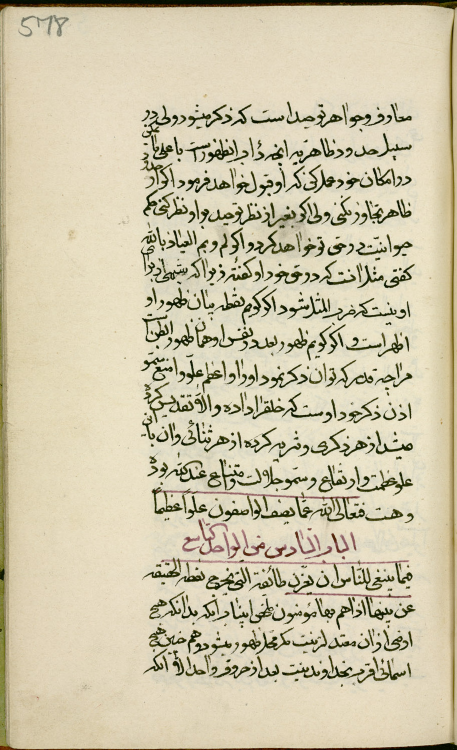 578
معارف و جواهر توحید است که ذکر میشود ولی در
سبیل حدود ظاهریه
در امکان خود عمل کنی که او قبول خواهد فرمود اگر از
ظاهر تجاوز نکنی ولی اگر بغیر از نظر توحید بر او نظر کنی حکم
حیوانیت در حق تو خواهد کرد و اگر گویم العیاذ بالله
کفتی مثل آنست که در حق خود او گفته زیرا که شیئی
او نیست که فرد المثل شود اگر گویم نقطه بیان ظهور او
اظهر است و اگر گویم ظهور بعد در نفس او همان ظهور
من اجید قدر که توان ذکر نمود او را و اعظم علو و امنع سمو
اذن ذکر خود اوست که خلق را داده و الا تقدیس کرده
میشد از هر ذکری و تنزیه کرده از هر ثنائی و آن
علو عظمت و ارتفاع و سمو جلالت و امتناع عند الله بوده
و هست فتعالی الله عما یصف الواصفون علوا عظیما
الباب السادس من الواحد التاسع
فیما ینبغی للناس ان یعزن طائفة التی تخرج نقطة الحقیقة
عن بینها اذا هم بها مؤمنون ملخص این باب آنکه بدانکه هیچ
ارضی از آن مقعد از نیست که محل ظهور میشود و همچنین هیچ
اسمائی اقرب بخداوند نیست بعد از حروف واحد الا آنکه